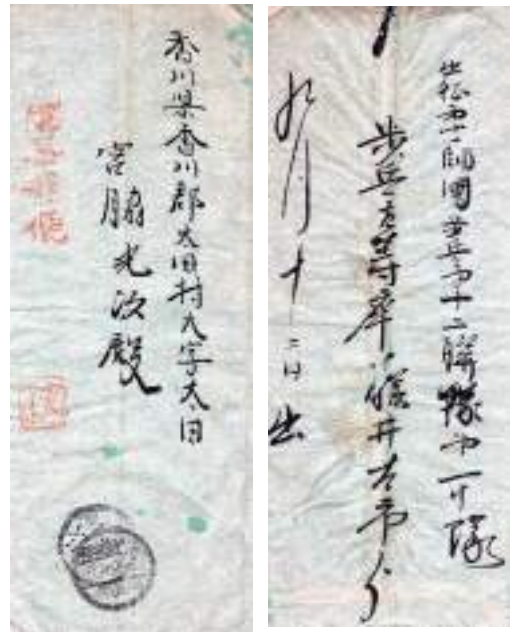 香川県香川郡太田村大字太田
宮脇光次殿
軍事郵便
出征第十一師團歩兵第十二聯隊第一中隊
歩兵一等卒
九月十二日出